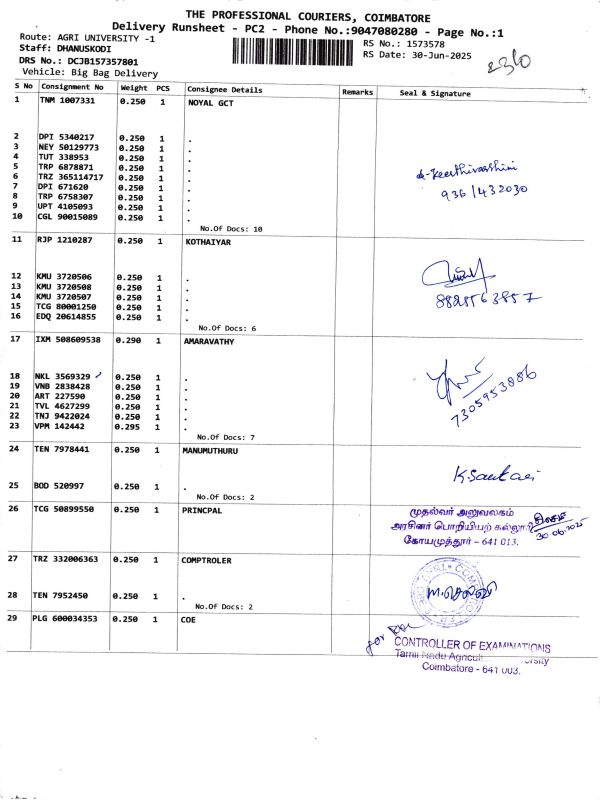 THE PROFESSIONAL COURIERS, COIMBATORE
Delivery Runsheet - PC2 - Phone No.:9047080280 - Page No.:1
Route: AGRI UNIVERSITY -1
RS No.: 1573578
Staff: DHANUSKODI
RS Date: 30-Jun-2025
DRS No.: DCJB157357801
Vehicle: Big Bag Delivery
S No Consignment No Weight PCS Consignee Details Remarks Seal & Signature
1 TNM 1007331 0.250 1 NOYAL GCT
2 DPI 5340217 0.250 1 .
3 NEY 50129773 0.250 1 .
4 TUT 338953 0.250 1 .
5 TRP 6878871 0.250 1 .
6 TRZ 365114717 0.250 1 .
7 DPI 671620 0.250 1 .
8 TRP 6758307 0.250 1 .
9 UPT 4105093 0.250 1 .
10 CGL 90015089 0.250 1 .
No.Of Docs: 10
11 RJP 1210287 0.250 1 KOTHAIYAR
12 KMU 3720506 0.250 1 .
13 KMU 3720508 0.250 1 .
14 KMU 3720507 0.250 1 .
15 TCG 80001250 0.250 1 .
16 EDQ 20614855 0.250 1 .
No.Of Docs: 6
17 IXM 508609538 0.290 1 AMARAVATHY
18 NKL 3569329 0.250 1 .
19 VNB 2838428 0.250 1 .
20 ART 227590 0.250 1 .
21 TVL 4627299 0.250 1 .
22 TNJ 9422024 0.250 1 .
23 VPM 142442 0.295 1 .
7305953886
No.Of Docs: 7
24 TEN 7978441 0.250 1 MANUMUTHURU
K.Sankari
25 BOD 520997 0.250 1 .
No.Of Docs: 2
26 TCG 50899550 0.250 1 PRINCPAL
முதல்வர் அலுவலகம்
அரசினர் பொறியியற் கல்லூரி
கோயமுத்தூர் - 641 013.
30.06.2025
27 TRZ 332006363 0.250 1 COMPTROLER
28 TEN 7952450 0.250 1 .
No.Of Docs: 2
29 PLG 600034353 0.250 1 COE
for
CONTROLLER OF EXAMINATIONS
Tamil Nadu Agricul versity
Coimbatore - 641 003.